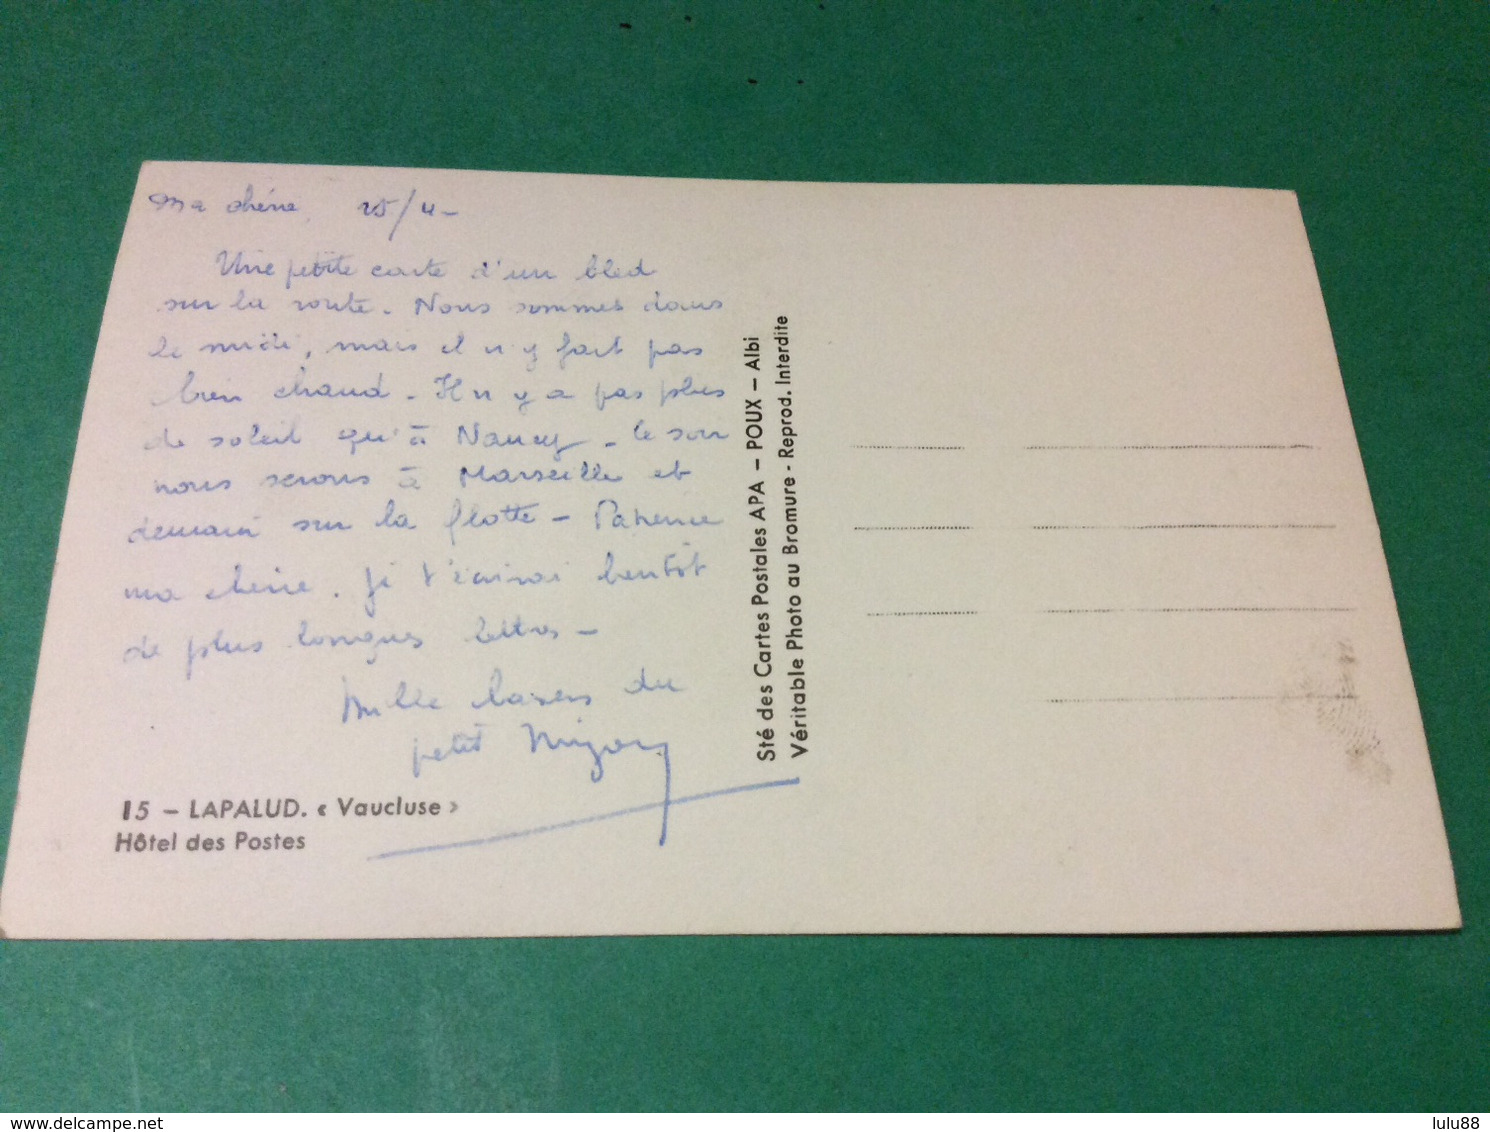 Ma chérie, 25/4 -
Une petite carte d'un bled
sur la route. Nous sommes dans
le midi, mais il n'y fait pas
bien chaud. Il n'y a pas plus
de soleil qu'à Nancy - le soir
nous serons à Marseille et
demain sur la flotte - Patience
ma chérie. Je t'écrirai bientôt
de plus longues lettres -
Mille baisers du
petit
15 - LAPALUD. « Vaucluse »
Hôtel des Postes
Sté des Cartes Postales APA - POUX - Albi
Véritable Photo au Bromure - Reprod. Interdite
www.delcampe.net
lulu88